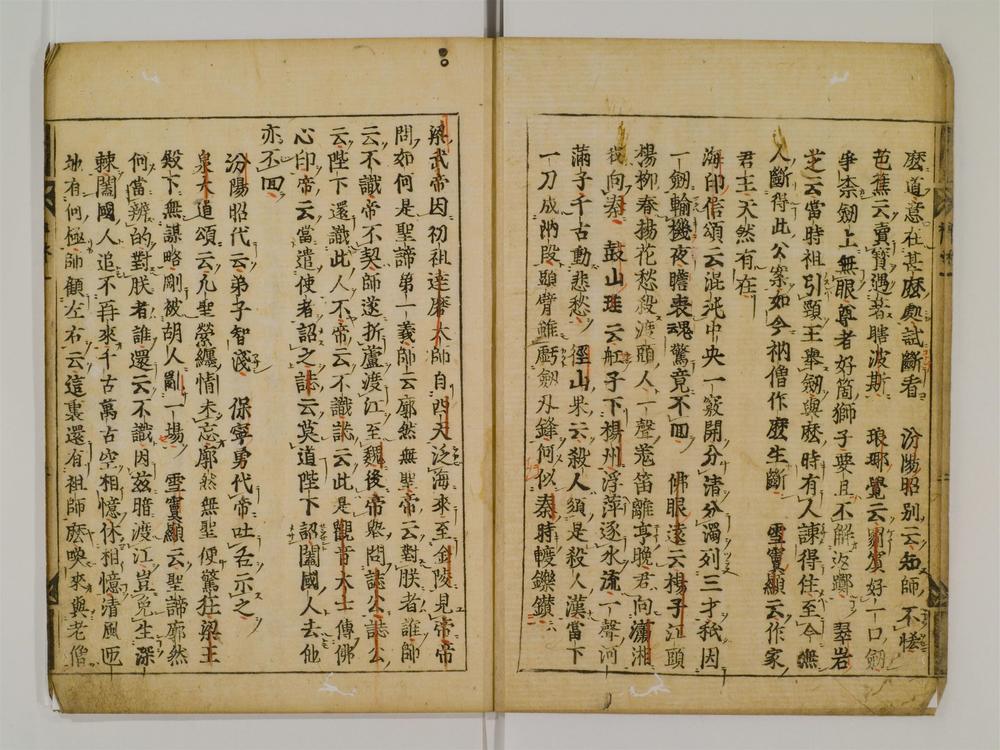 麼道意在甚麼處試斷看　汾陽昭別云知師不恡
芭蕉云賣寶遇著瞎波斯　琅琊覺云好一口劒
爭柰劒上無眼尊者好箇獅子要且不解返躑　翠岩
芝云當時祖引頸王舉劒與麼時有人諫得住至今無
人斷得此公案如今衲僧作麼生斷　雪竇顯云作家
君王天然有在
海印信頌云混沌中央一竅開分清分濁列三才秖因
一劒輪機夜膽喪魂驚竟不回　佛眼遠云楊子江頭
楊柳春揚花愁殺渡頭人一聲羗笛離亭晚君向瀟湘
我向秦　鼓山珪云舡子下楊州浮萍逐水流一聲河
滿子千古動悲愁　徑山杲云殺人須是殺人漢當下
一刀成兩段顯臂雖虧劒刃鋒何似秦時轆鑽
梁武帝因初祖達磨大師自西天泛海來至金陵見帝帝
問如何是聖諦第一義師云廓然無聖帝云對朕者誰師
云不識帝不契師遂折蘆渡江至魏後帝舉問誌公誌公
云陛下還識此人不帝云不識誌云此是觀音大士傳佛
心印帝云當遣使者詔之誌云莫道陛下詔闔國人去他
亦不回
汾陽昭代云弟子智淺　保寧勇代帝吐舌示之
泉大道頌云凡聖縈纏情未忘廓然無聖便驚狂梁王
殿下無謀略剛被胡人亂一場　雪竇顯云聖諦廓然
何當辨的對朕者誰還云不識因茲暗渡江豈免生深
棘闔國人追不再來千古萬古空相憶休相憶清風匝
地有何極師顧左右云這裏還有祖師麼喚來與老僧